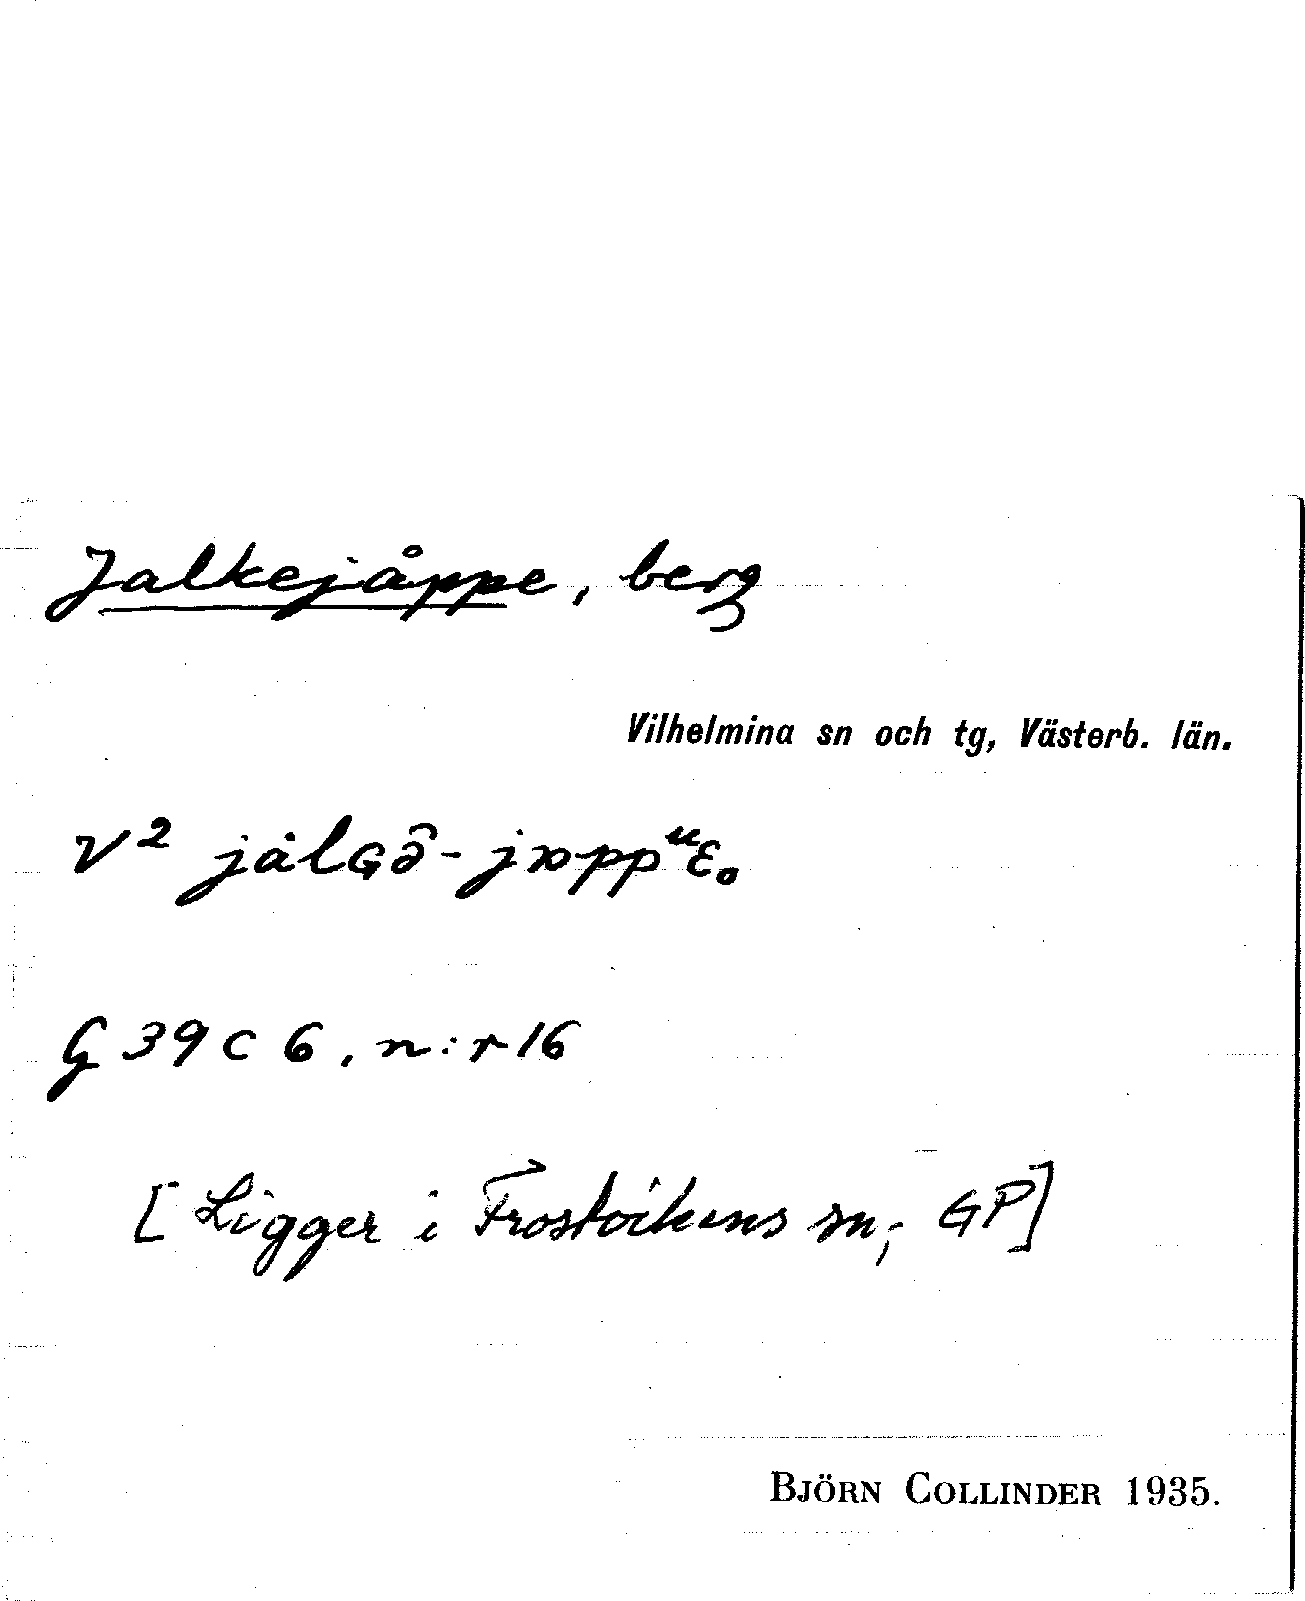 Jalkejåppe, berg
Vilhelmina sn och tg, Västerb. län.
V² jȧlɢə̑-jɔppᵘɛ̥
G 39 c 6, n:r 16
[Ligger i Frostvikens sn; GP]
BJÖRN COLLINDER 1935.